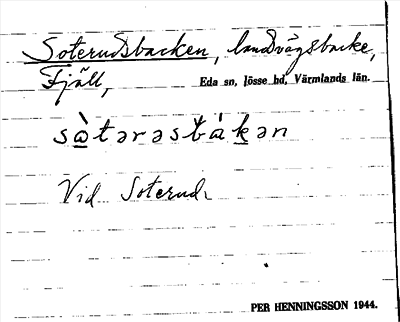 Soterudsbacken, landsvägsbacke,
Fjäll,
Eda sn, Jösse hd, Värmlands län.
sὰtərəsbákən
Vid Soterud.
PER HENNINGSSON 1944.